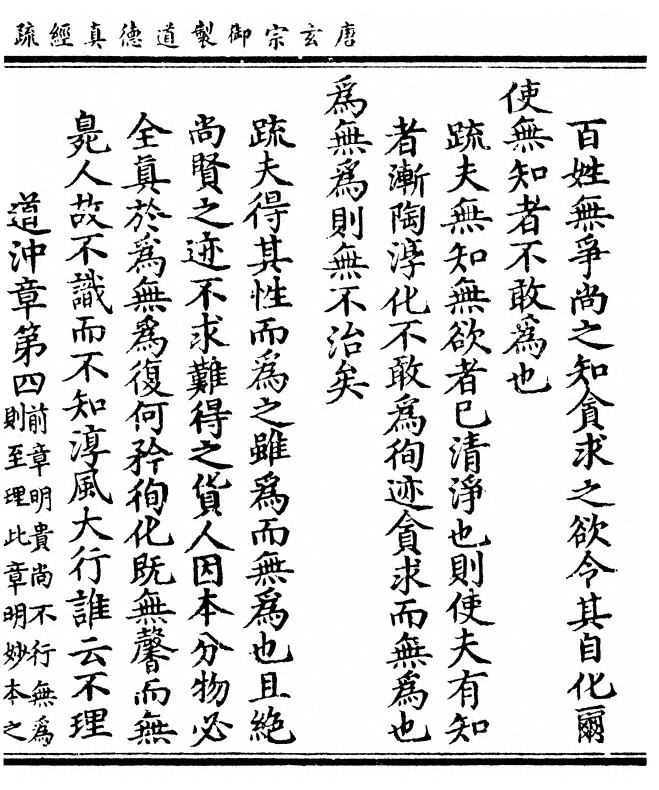 唐玄宗御製道德真經疏
百姓無爭尚之知貪求之欲令其自化爾
使無知者不敢為也
疏夫無知無欲者已清淨也則使夫有知
者漸陶淳化不敢為徇迹貪求而無為也
為無為則無不治矣
疏夫得其性而為之雖為而無為也且絕
尚賢之迹不求難得之貨人因本分物必
全真於為無為復何矜徇化既無馨而無
㚖人故不識而不知淳風大行誰云不理
道沖章第四前章明貴尚不行無為
則至理此章明妙本之